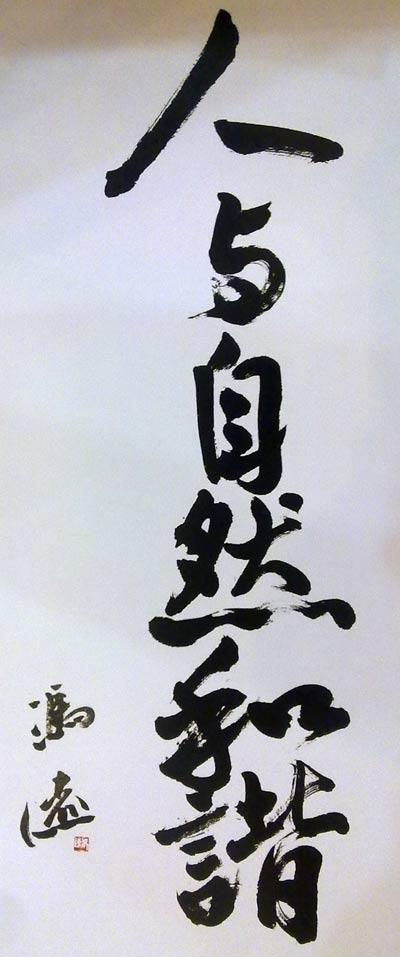 人与自然和諧
馮遠